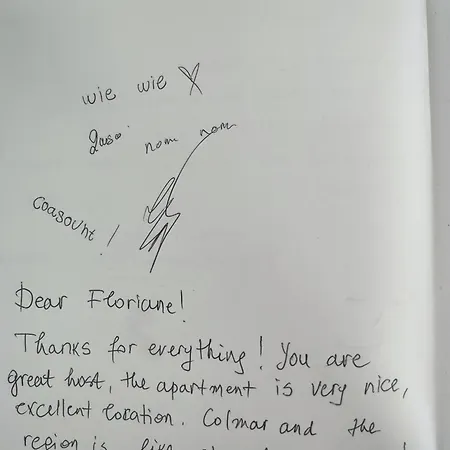 wie wie
nom nom
coasount!
Dear Floriane!
Thanks for everything! You are
great host, the apartment is very nice,
excellent location. Colmar and the
region is